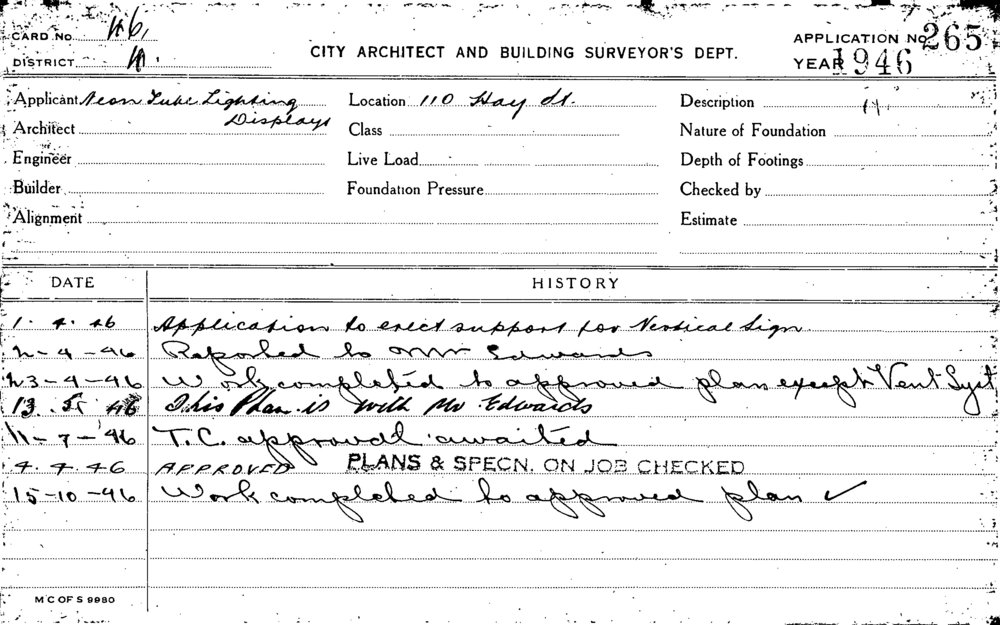 CARD No. 46,
DISTRICT
CITY ARCHITECT AND BUILDING SURVEYOR'S DEPT.
APPLICATION No. 265
YEAR 1946
Applicant Neon Tube Lighting Displays
Location 110 Hay St.
Description
Architect
Class
Nature of Foundation
Engineer
Live Load
Depth of Footings
Builder
Foundation Pressure
Checked by
Alignment
Estimate
DATE HISTORY
1. 4. 46 Application to erect support for Vertical Sign
2-4-46 Reported to Mr Edwards
23-4-46 Work completed to approved plan except Vent Syst
13. 5. 46 This Plan is with Mr Edwards
11-7-46 T.C. approval awaited
4. 4. 46 APPROVED PLANS & SPECN. ON JOB CHECKED
15-10-46 Work completed to approved plan ✓
M C OF S 9980